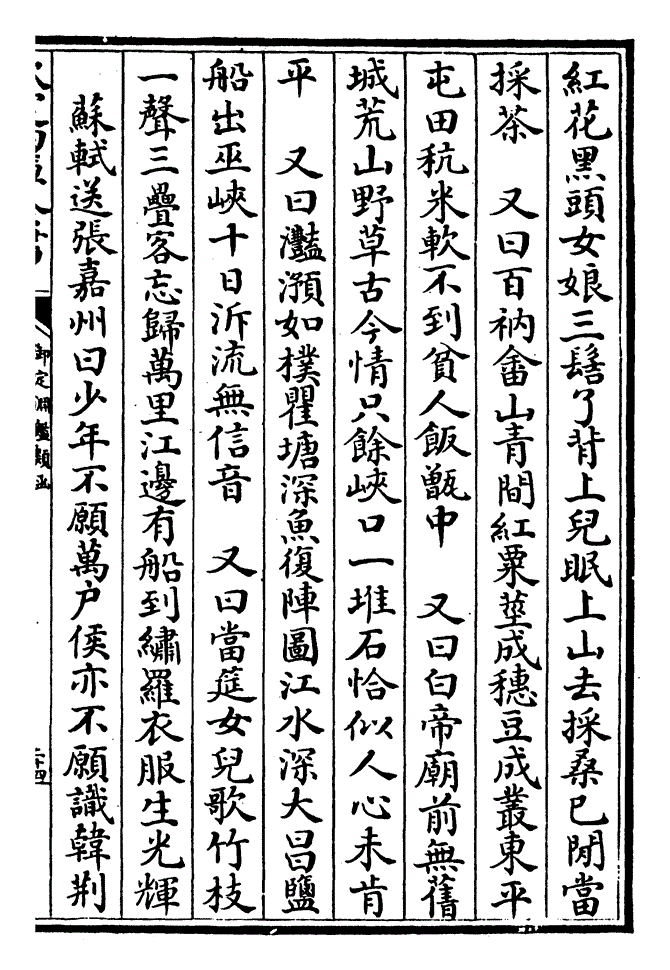 紅花黑頭女娘三髻丫背上兒眠上山去採桑已閒當
採茶　又曰百衲畬山青間紅粟莖成穗豆成叢東平
屯田秔米軟不到貧人飯甑中　又曰白帝廟前無舊
城荒山野草古今情只餘峽口一堆石恰似人心未肯
平　又曰灩澦如樸瞿塘深魚復陣圖江水深大昌鹽
船出巫峽十日泝流無信音　又曰當筵女兒歌竹枝
一聲三疊客忘歸萬里江邊有船到繡羅衣服生光輝
蘇軾送張嘉州曰少年不願萬户侯亦不願識韓荆
御定淵鑑類函
二十四